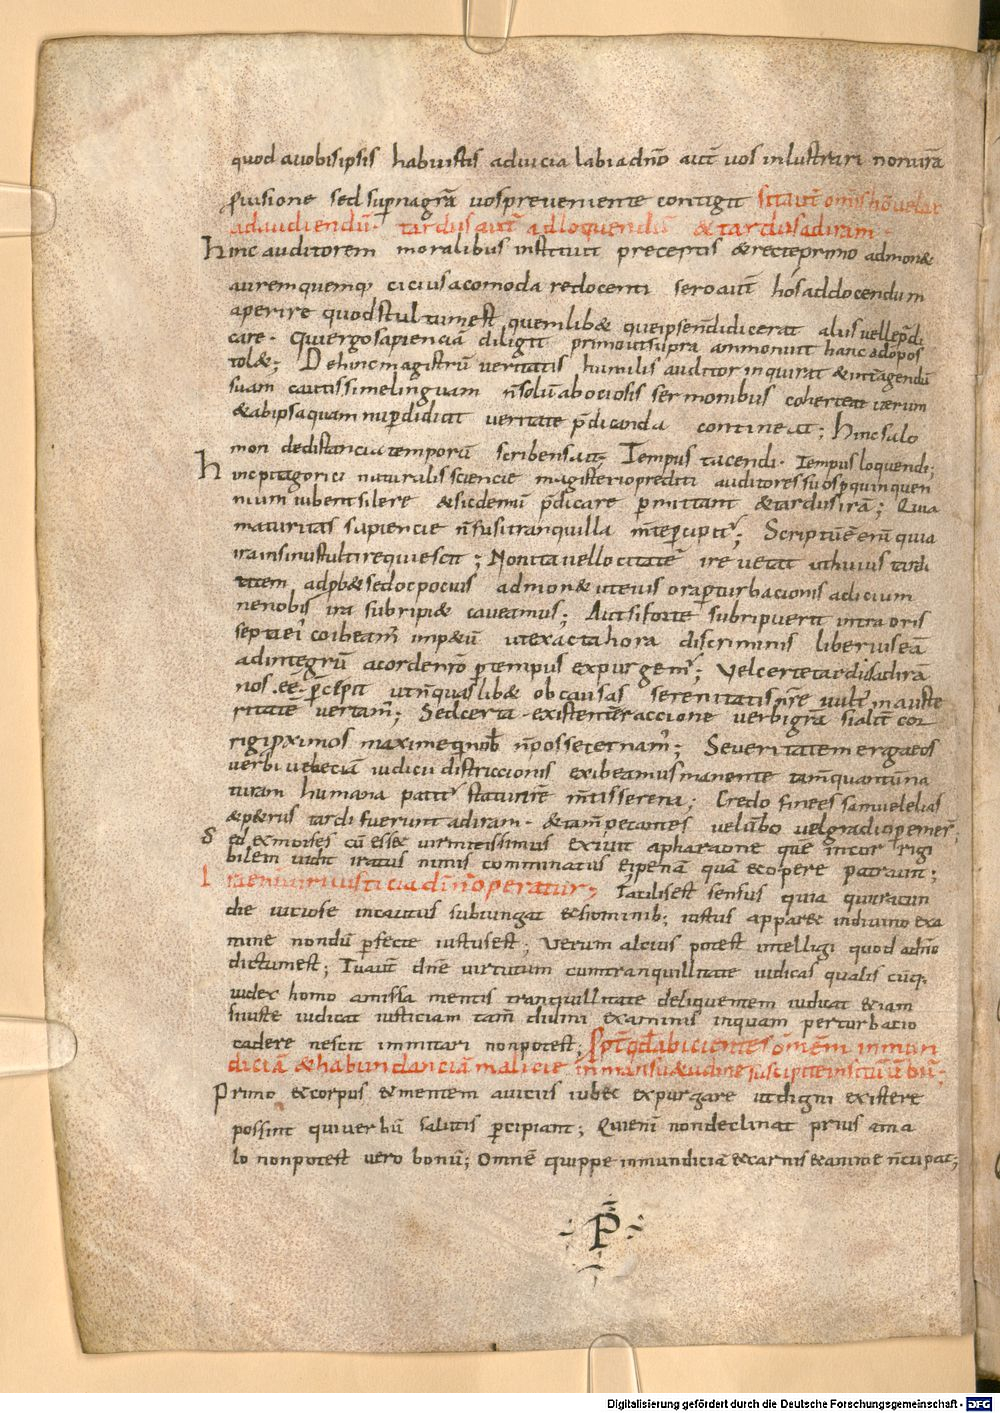 quod auobisipsis habuistis aduicia labi adn̄o aut̄ uos inlustrari non ur̄a
puisione sed sup̄nagr̄a uospreueniente contigit sit aut̄ om̄s hō uelax
adaudiendū· tardus aut̄ adloquendū & tardus adiram·
Hinc auditorem moralibus instituit preceptis & recte primo admon&
auremquemq; cicius acomodare docenti sero aut̄ hos addocendum
aperire quodstultumest quemlib& queipsen̄didicerat aliis uellep̄di
care· Qui ergo sapienciā diligit primo ut supra ammonuit hanc adopos
tol&; Dehinc magistrū ueritatis humilis auditor inquirat & int̄agendū
suam cautissime linguam n̄ solū abociosis sermonibus coherceat uerum
& abipsa quam nup̄ didicit ueritate p̄dicanda contineat; Hinc salo
mon dedistancia temporū scribens ait; Tempus tacendi· Tempus loquendi;
Hinc pitagorici naturalis sciencie magisterio prediti auditores suos p̄ quinquen
nium iubent silere & sic demū p̄dicare p̄mittant & tardus irā; Quia
maturitas sapiencie n̄fusi tranquilla m̄te p̄cipit̄; Scriptū ē en̄ quia
ira insinu stulti requiescit; Non ita uellocitatē ire uetat ut huius tardi
tatem adp̄b& sed oc pocius admon& ut eius or a p̄turbacionis adicium
nenobis ira subripi& caueamus; Aut si forte subripuerit intra oris
septa ei' coibeam̄ imp&ū ut exacta hora discriminis liberius eā
adintegrū acorden̄o p̄tempus expurgem̄; Vel certe tardi sad irā
nos .ee· p̄cepit ut n̄ quas lib& ob causas serenitatis n̄re uult in auste
ritatē uertam̄; Sed certa existente raccione uerbigrā si alit̄ cor
rigi p̄ximos maxime q̄ nob̄ n̄ posse cernam̄; Seueritatem erga eos
uerbi ueleciā iudicii districcionis exibeamus manente tam̄ quantū na
turam humana patit̄ statu int̄ne m̄tis serena; Credo finees samuel elias
& p&rus tardi fuerunt adiram· & tam̄ pecantes uel ūbo uel gradio p̄emer̄;
Sed & moises cū esset uir mitissimus exiuit apharaone quē in cor rigi
bilem uidit iratus nimis comminatus ei penā quā & opere patrauit;
Ira enim uiri iusticia di n̄ operatur; Facilis est sensus quia qui iracun
die uiciose incautus subiungat & hominib; iustus appar& indiuino exa
mine nondū p̄fecte iustus est; Verum alcius potest intelligi quod adn̄o
dictum est; Tu aut̄ dn̄e uirtutum cum tranquillitate iudicas qualis cuq;
iudex homo amissa mentis tranquillitate deliquentem iudicat & iam
si iuste iudicat iusticiam tam̄ diuini examinis inquam perturbacio
cadere nescit immitari non potest; Ppt̄ qd̄ abicientes om̄em inmun
diciā & habundanciā malicie in mansu&udine suscipite insitū ūbū;
Primo & corpus & mentem auiciis iub& expurgare ut digni existere
possint qui uerbū salutis p̄cipiant; Qui enī non declinat prius ama
lo non potest uero bonū; Omnē quippe inmundiciā & carnis & anime n̄cupat;
P
Digitalisierung gefördert durch die Deutsche Forschungsgemeinschaft - DFG